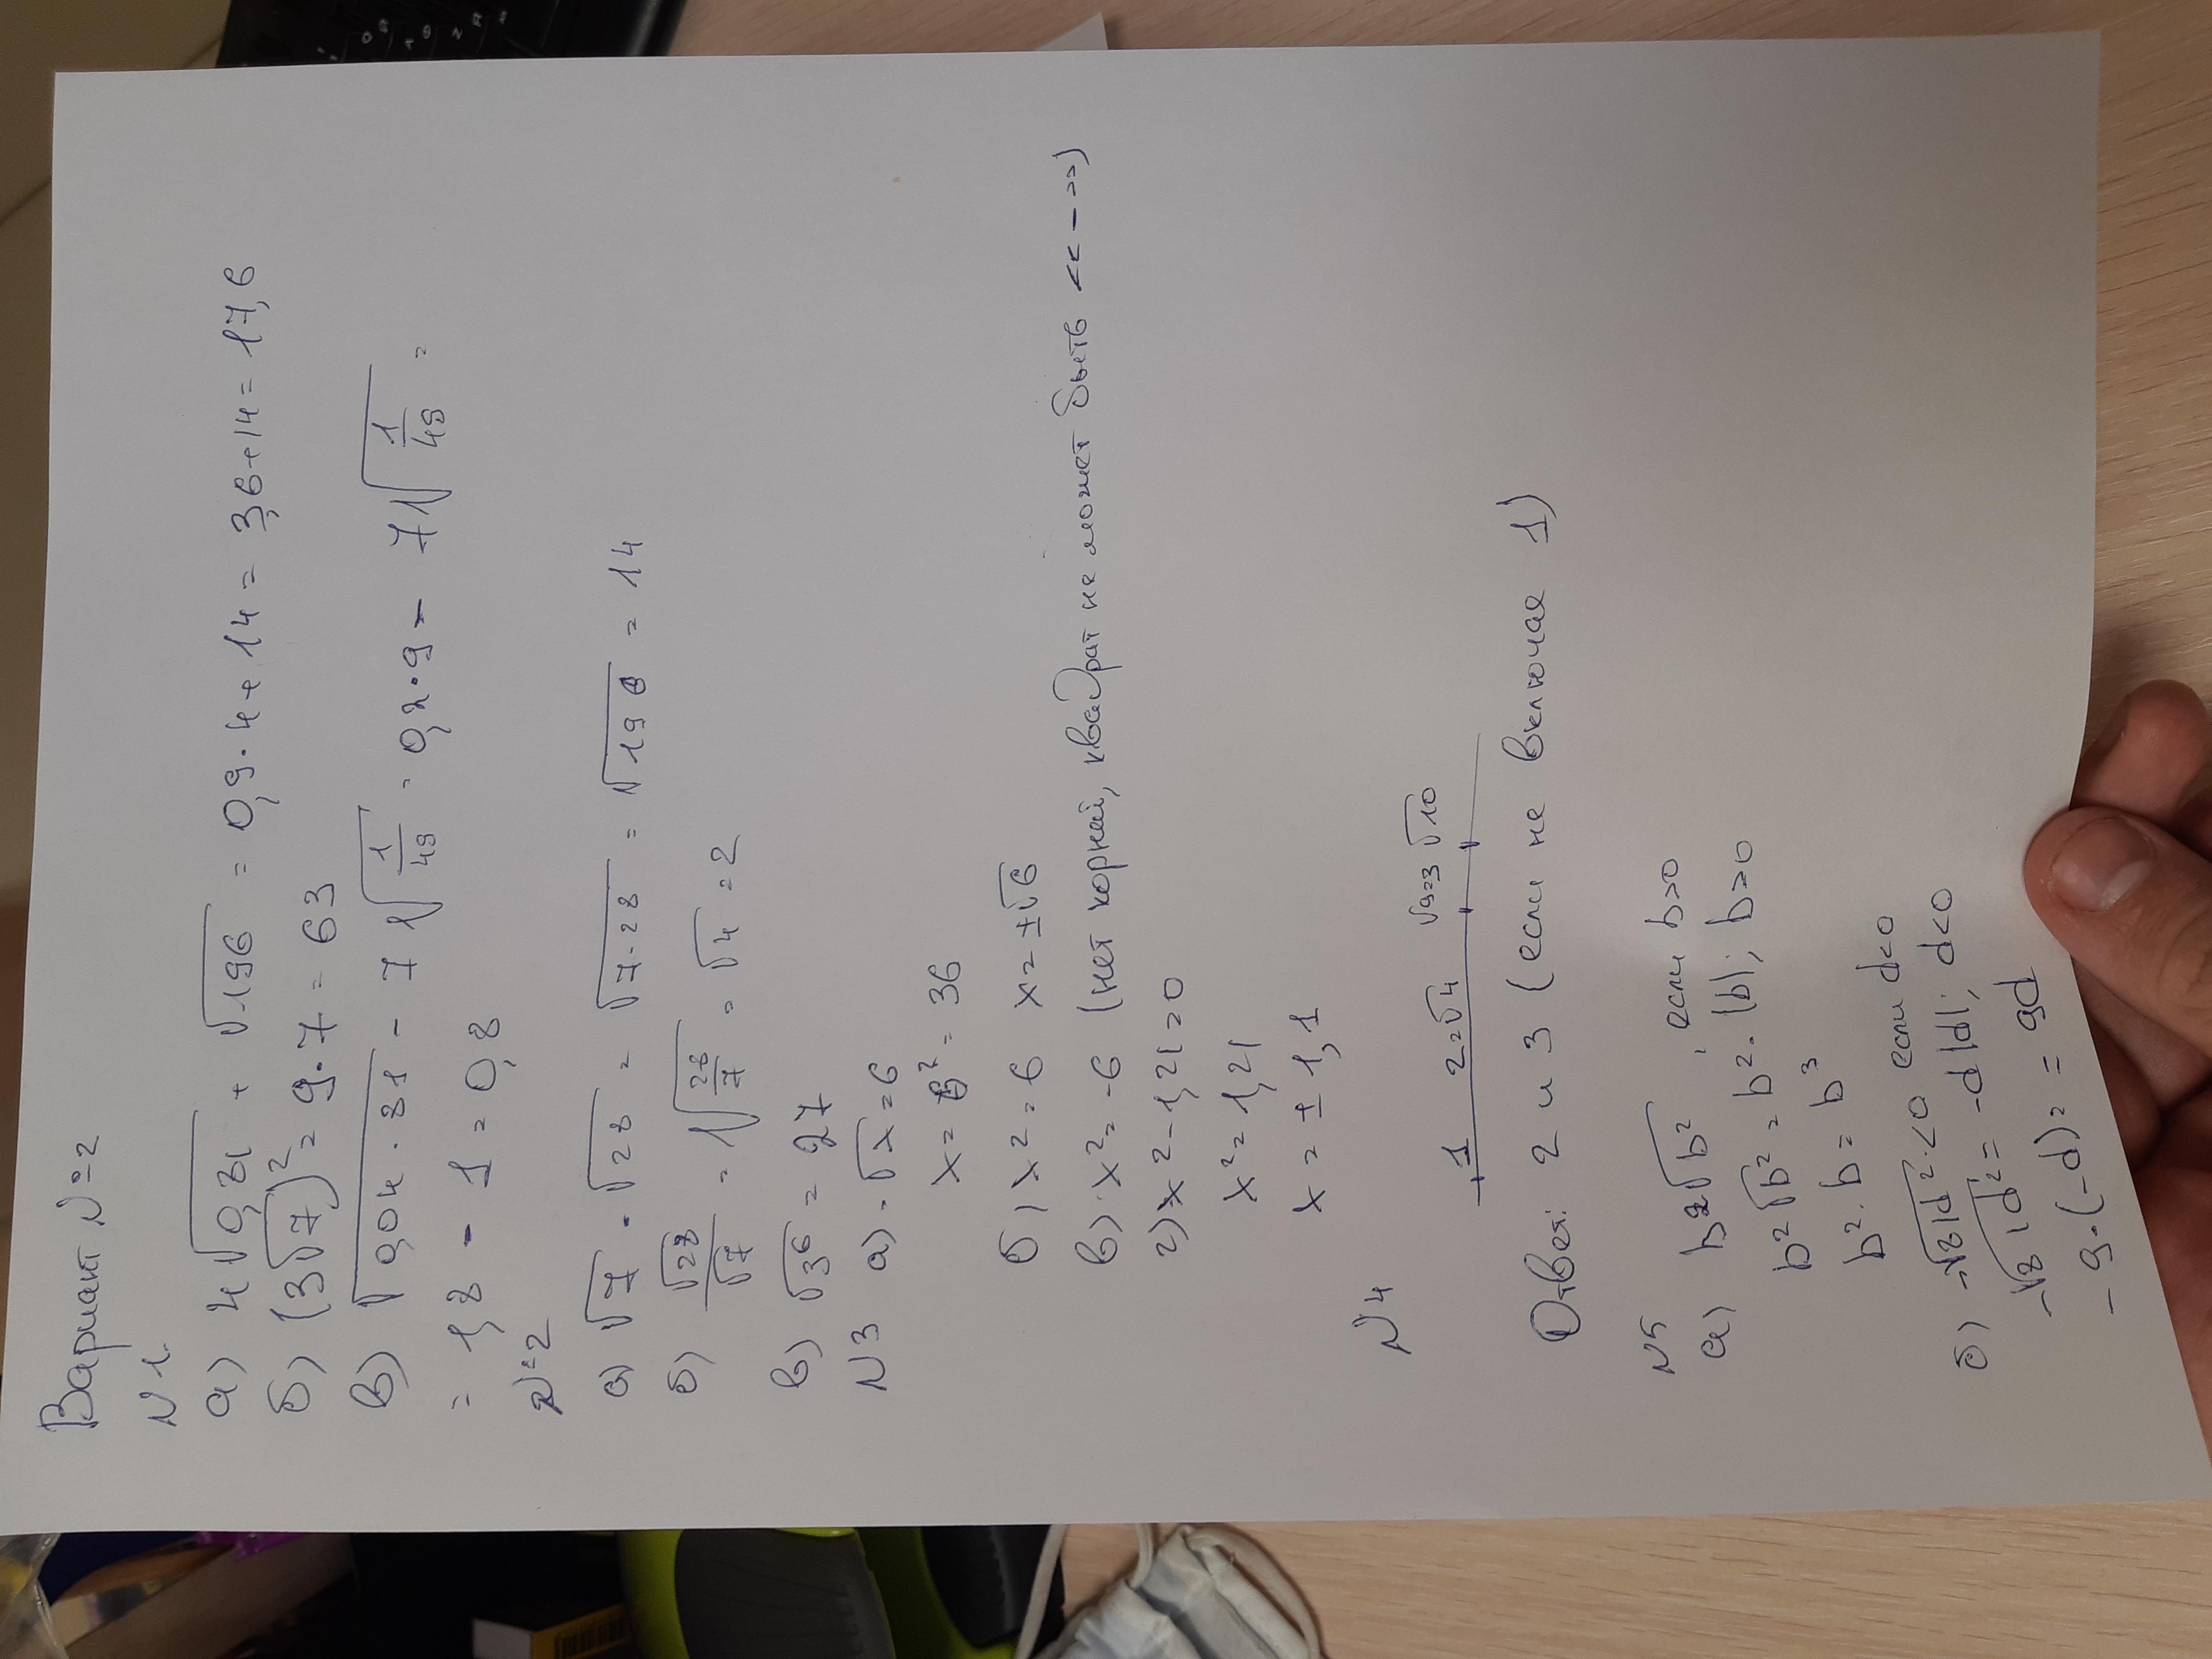 Вариант №2
N 1.
а) 4√0,81 + √196 = 0,9·4+14 = 3,6+14 = 17,6
б) (3√7)² = 9·7 = 63
в) √0,04·81 - 7√1/49 = 0,2·9 - 7√1/49 =
= 1,8 - 1 = 0,8
№2
а) √7 · √28 = √7·28 = √196 = 14
б) √28/√7 = √28/7 = √4 = 2
в) √3⁶ = 27
N3 а) √x = 6
x = 6² = 36
б) x² = 6 x = ±√6
в) x² = -6 (нет корней, квадрат не может быть «-»)
г) x² - 1,21 = 0
x² = 1,21
x = ± 1,1
N4
1 2=√4 √9=3 √10
Ответ: 2 и 3 (если не включая 1)
N5
а) b²√b², если b>0
b²√b² = b²·|b|; b>0
b²·b = b³
б) -√81d² <0 если d<0
-√81d² = -d|d|; d<0
-9·(-d) = 9d